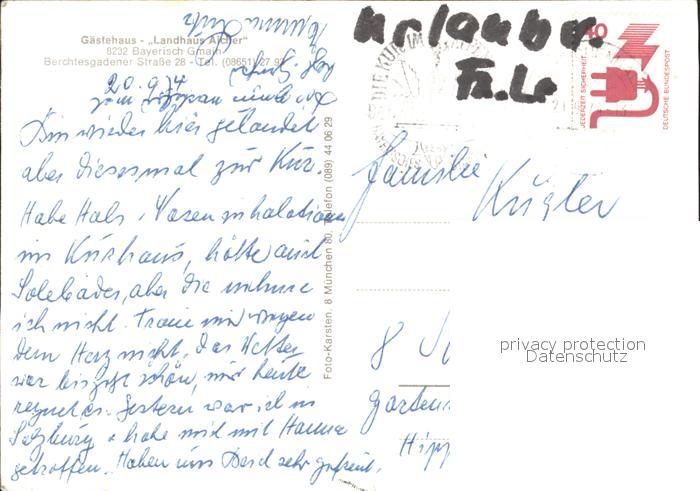 Gästehaus - „Landhaus Aicher"
8232 Bayerisch Gmain
Berchtesgadener Straße 28 - Tel. (08651) 27 9
20.9.74
Bin wieder hier gelandet
aber diesesmal zur Kur.
Habe Hals, Nasen inhalationen
im Kurhaus, hätte auch
Solebäder, aber die nehme
ich nicht. Traue mir wegen
dem Herz nicht. Das Wetter
war bis jetzt schön, nur heute
regnet es. Gestern war ich in
Salzburg u habe mich mit Hanna
getroffen. Haben uns sehr gefreut.
Foto-Karsten, 8 München 80, Telefon (089) 44 06 29
Urlauber.
Fa.Le
DIE KUR IM
40
JEDERZEIT SICHERHEIT
DEUTSCHE BUNDESPOST
Familie
Kugler
8
Garten
Hipp
privacy protection
Datenschutz